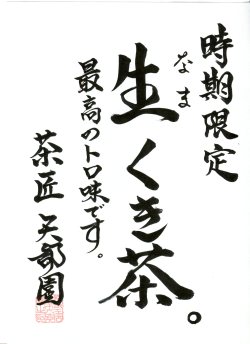 時期限定
なま
生くき茶。
最高のトロ味です。
茶匠 矢部園